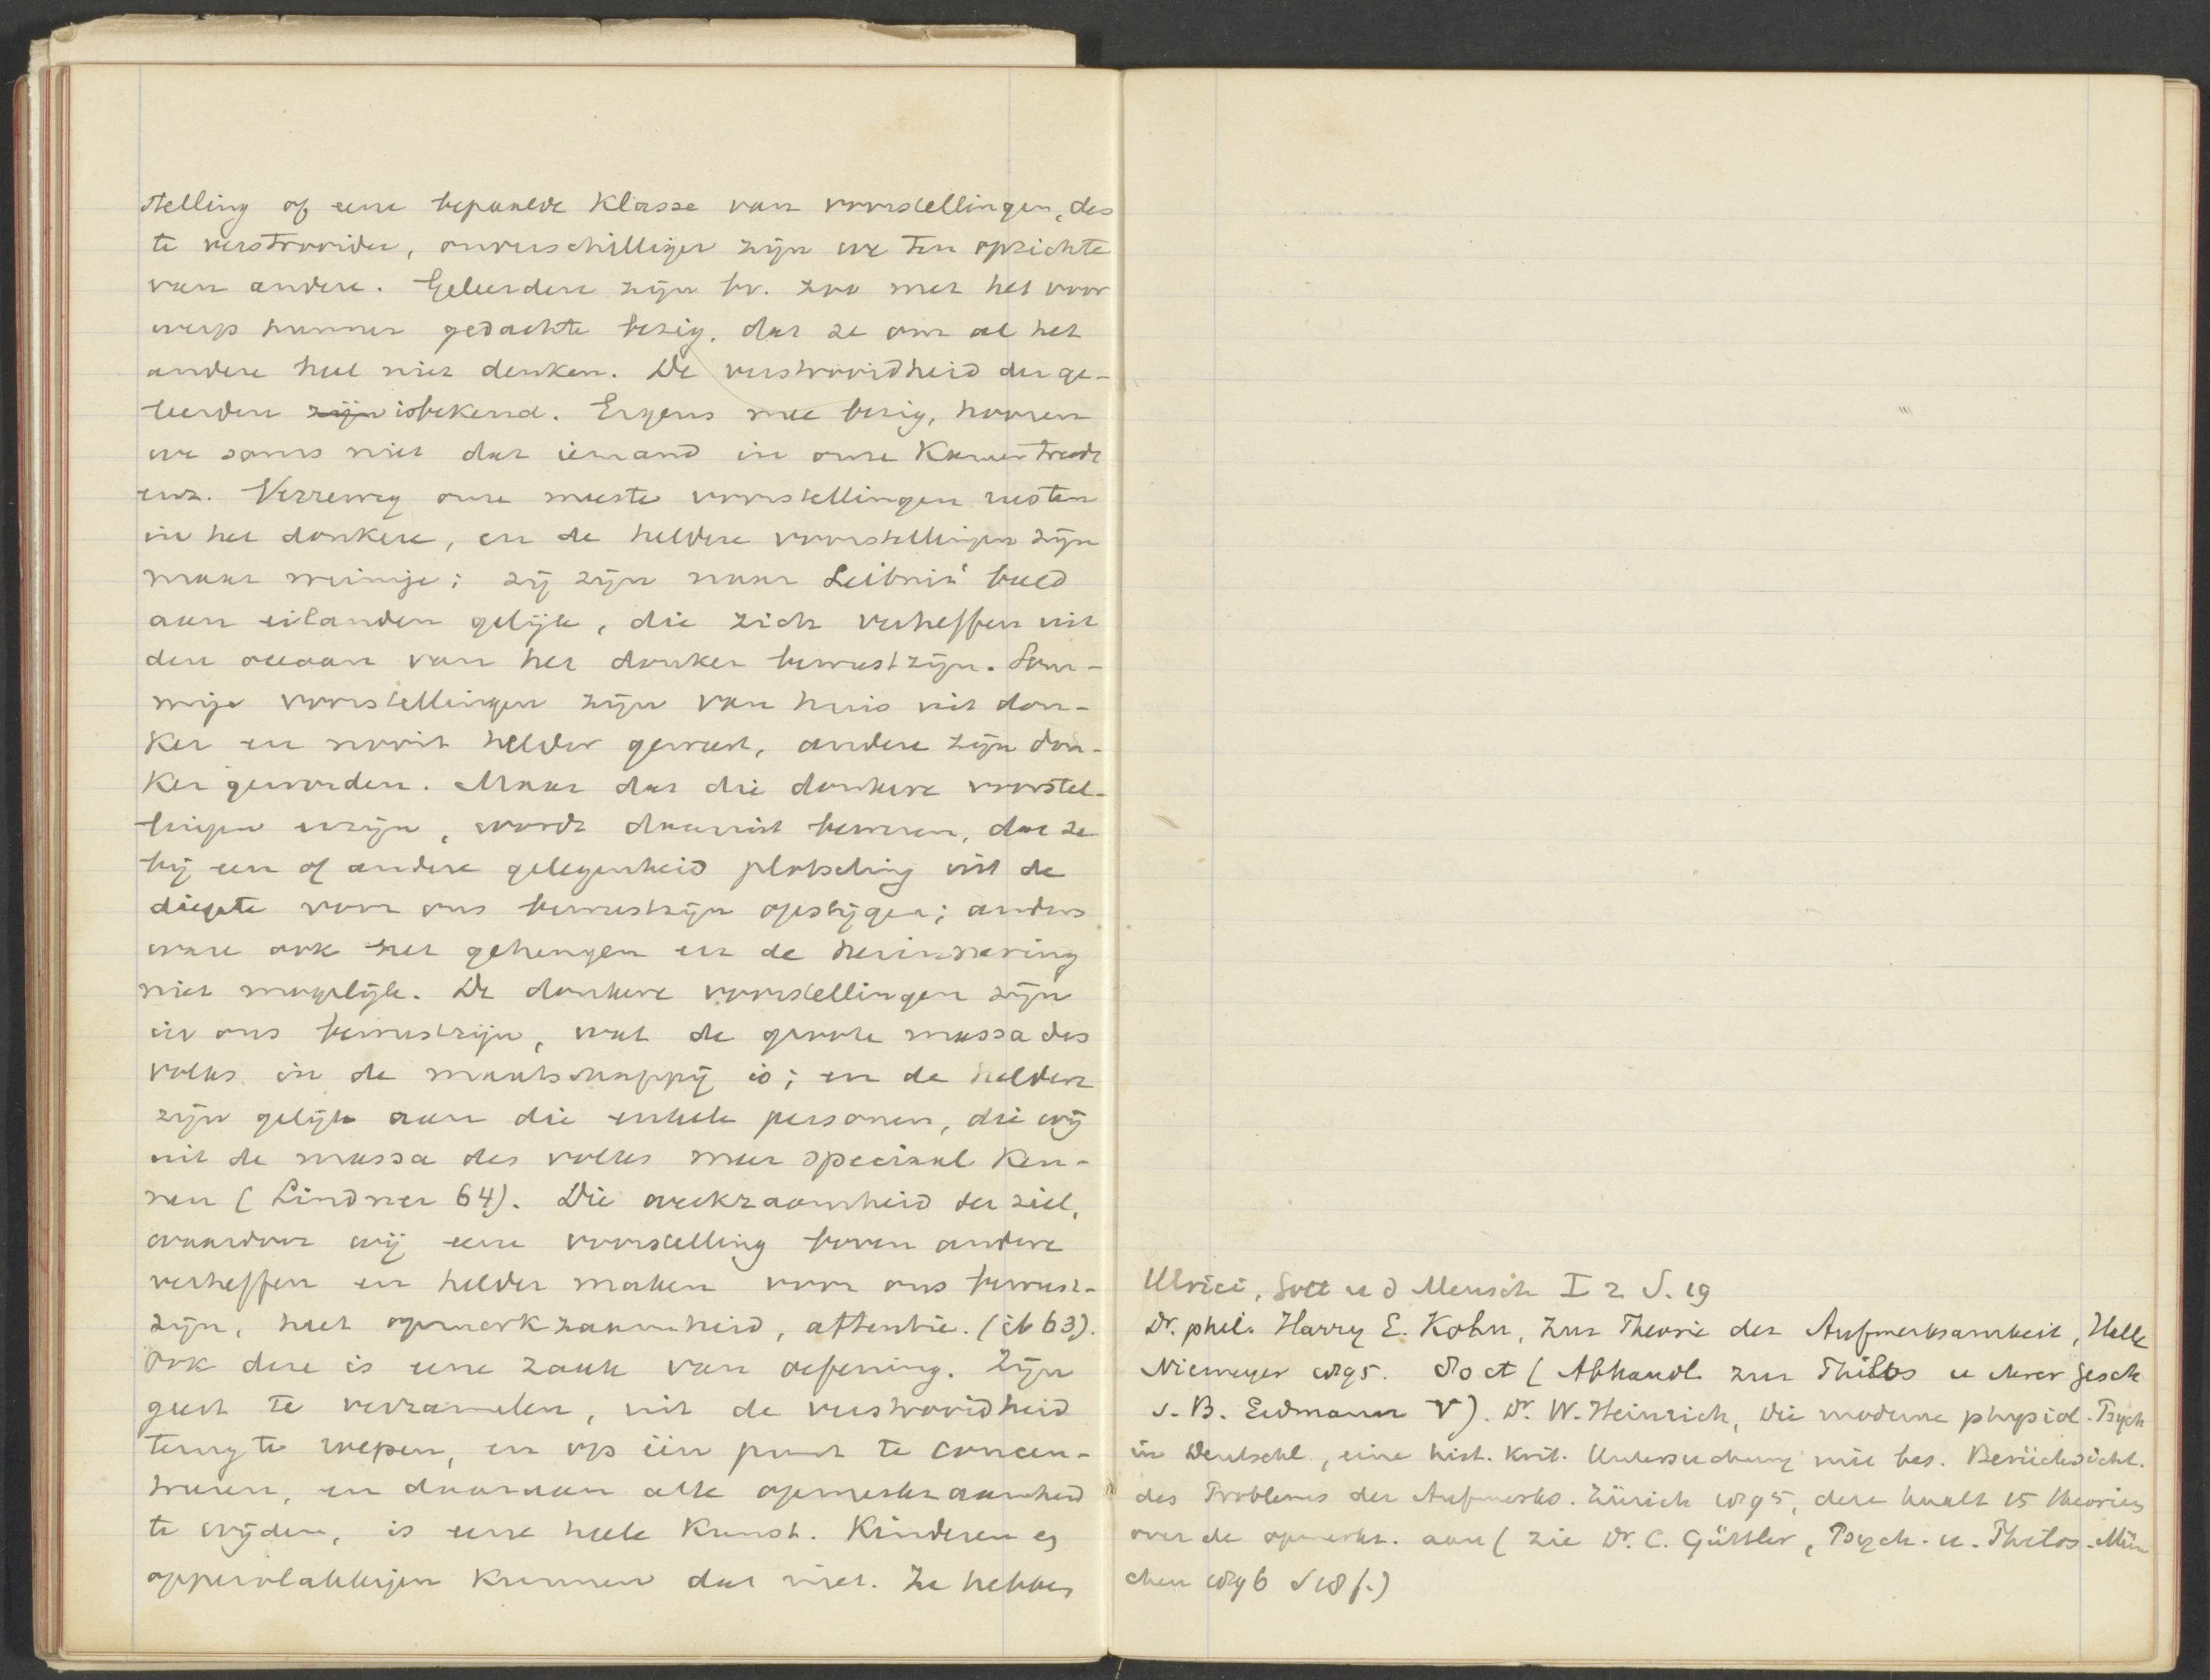 stelling of eene bepaalde klasse van voorstellingen, des
te verstrooider, onverschilliger zijn we ten opzichte
van andere. Geleerden zijn bv. zoo met het voor
werp hunner gedachte bezig, dat ze om al het
andere heel niet denken. De verstrooidheid der ge-
leerden zijn is bekend. Ergens mee bezig, hooren
we soms niet dat iemand in onze kamer treedt
enz. Verreweg onze meeste voorstellingen rusten
in het donkere, en de heldere voorstellingen zijn
maar weinige; zij zijn naar Leibniz' beeld
aan eilanden gelijk, die zich verheffen uit
den oceaan van het donker bewustzijn. Som-
mige voorstellingen zijn van huis uit don-
ker en nooit helder geweest, andere zijn don-
ker geworden. Maar dat die donkere voorstel-
lingen er zijn, wordt daaruit bewezen, dat ze
bij een of andere gelegenheid plotseling uit de
diepte voor ons bewustzijn opstijgen; anders
ware ook het geheugen en de herinnering
niet mogelijk. De donkere voorstellingen zijn
in ons bewustzijn, wat de groote massa des
volks in de maatschappij is; en de heldere
zijn gelijk aan die enkele personen, die wij
uit de massa des volks meer speciaal ken-
nen (Lindner 64). Die werkzaamheid der ziel,
waardoor wij eene voorstelling boven andere
verheffen en helder maken voor ons bewust-
zijn, heet opmerkzaamheid, attentie. (ib 63).
Ook deze is eene zaak van oefening. Zijn
geest te verzamelen, uit de verstrooidheid
terug te roepen, en op één punt te concen-
treren, en daaraan alle opmerkzaamheid
te wijden, is eene heele kunst. Kinderen en
oppervlakkigen kunnen dat niet. Ze hebben
Ulrici, Gott u d Mensch I 2 S. 19
Dr. phil. Harry E. Kohn, Zur Theorie der Aufmerksamkeit, Halle
Niemeyer 1895. (Abhandl. zur Philos u derer Gesch
v. B. Erdmann V). Dr. W. Heinrich, Die moderne physiol. Psych
in Deutschl., eine hist. krit. Untersuchung mit bes. Berücksicht.
des Problemes der Aufmerks. Zürich 1895, deze haalt 15 theorieen
over de opmerkz. aan (zie Dr. C. Güttler, Psych. u. Philos. Mün
chen 1896 S 18 f.)